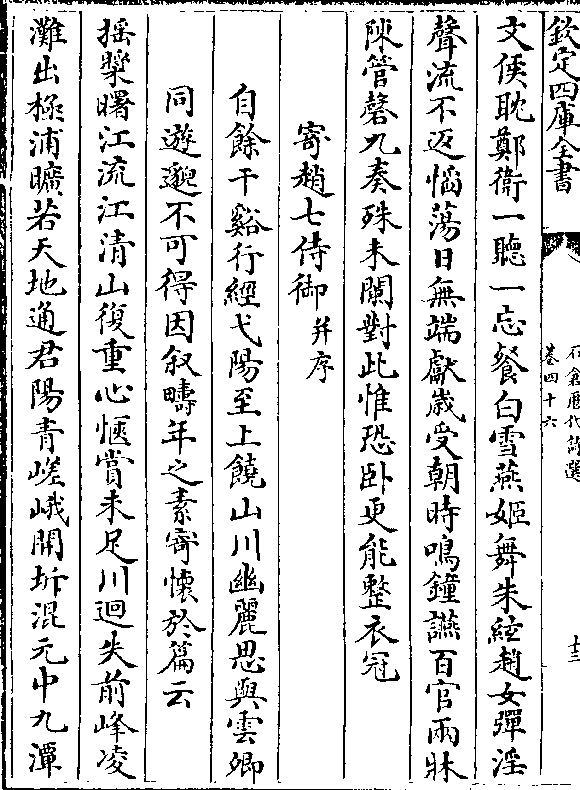 欽定四庫全書
石倉歷代詩選
卷四十六
十三
文侯耽鄭衛一聽一忘餐白雪燕姬舞朱絃趙女彈淫
聲流不返慆蕩日無端獻歲受朝時鳴鐘讌百官兩牀
陳管磬九奏殊未闌對此惟恐卧更能整衣冠
寄趙七侍御并序
自餘干谿行經弋陽至上饒山川幽麗思與雲卿
同遊邈不可得因叙疇年之素寄懷於篇云
摇槳曙江流江清山復重心愜賞未足川迴失前峰凌
灘出極浦曠若天地通君陽青嵯峨開坼混元中九潭